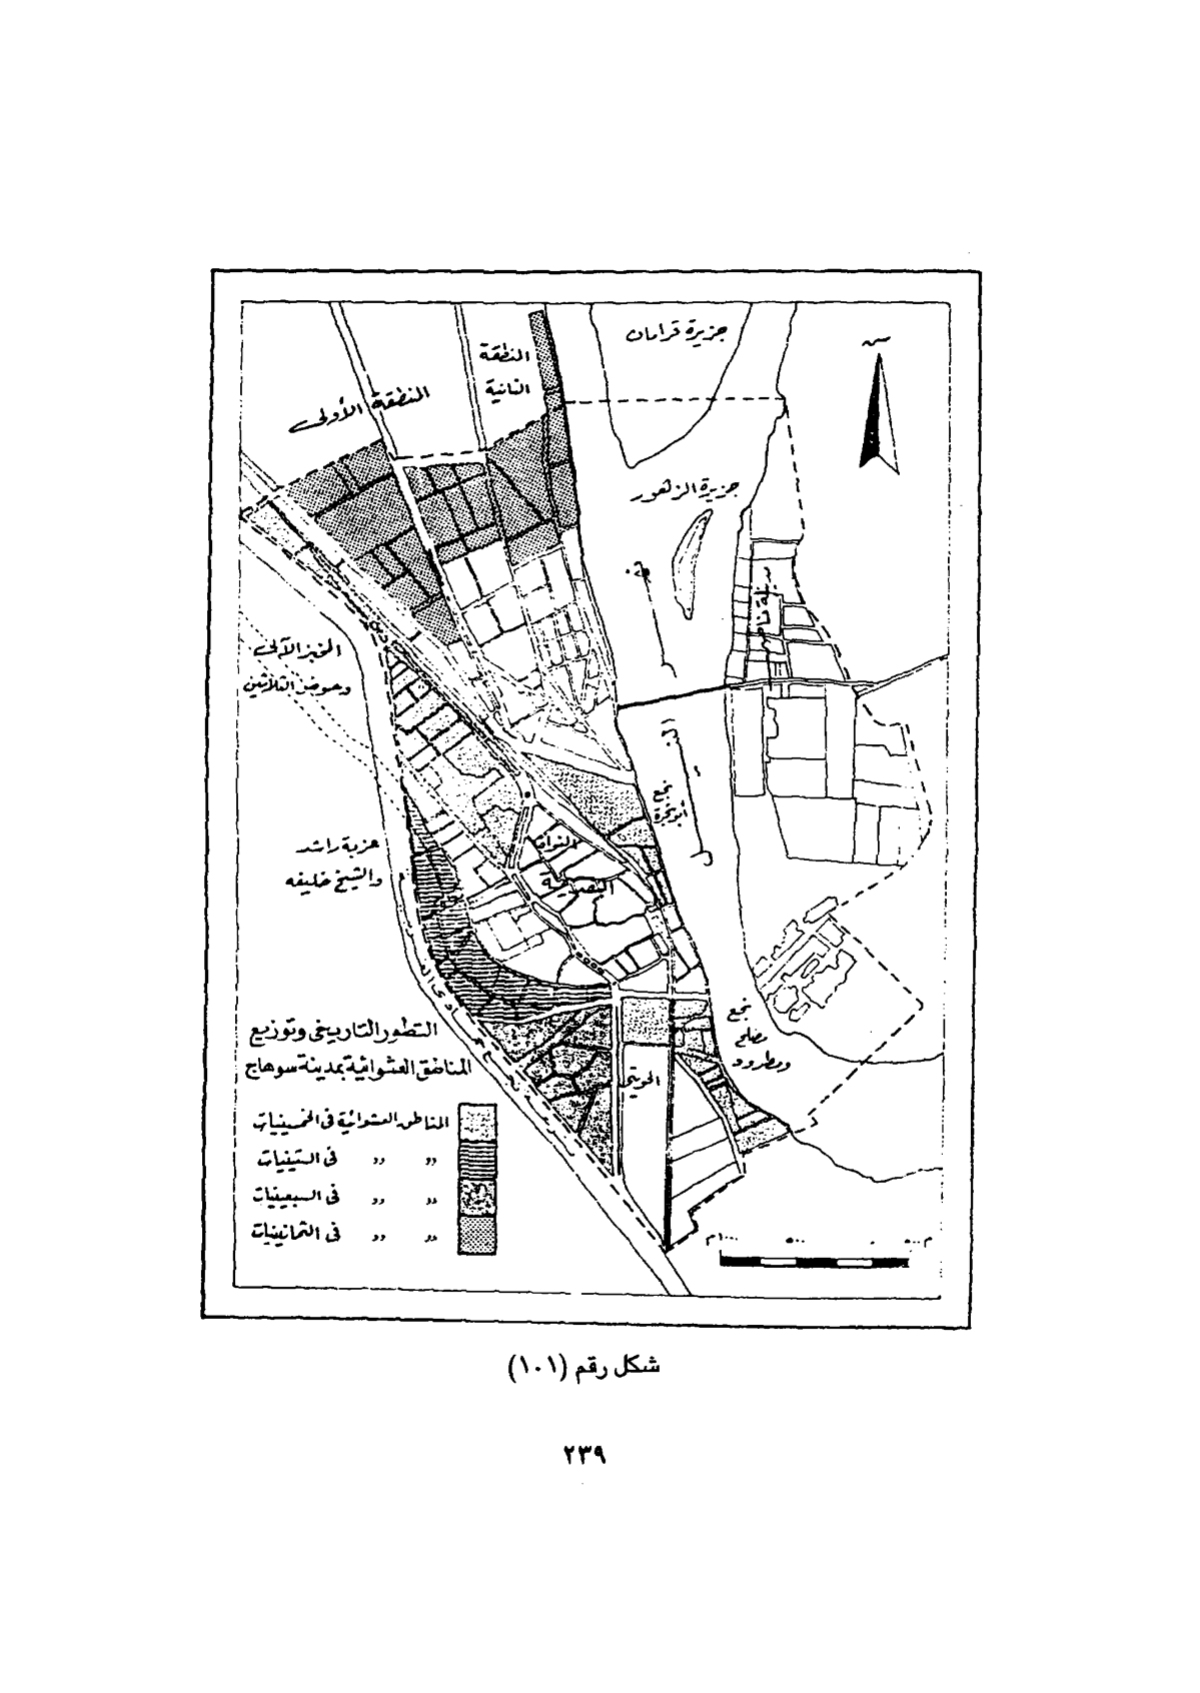 جزيرة قرامان
المنطقة
الثانية
المنطقة الأولى
جزيرة الزهور
المخبز الآلى
وحوض الثلاثين
نجع
أبو شجرة
عزبة راشد
والشيخ خليفه
نجع
مصلح
ومطرود
الحويتى
التطور التاريخى وتوزيع
المناطق العشوائية بمدينة سوهاج
المناطق العشوائية فى الخمسينيات
〃 〃 فى الستينيات
〃 〃 فى السبعينيات
〃 〃 فى الثمانينيات
شكل رقم (١٠١)
٢٣٩